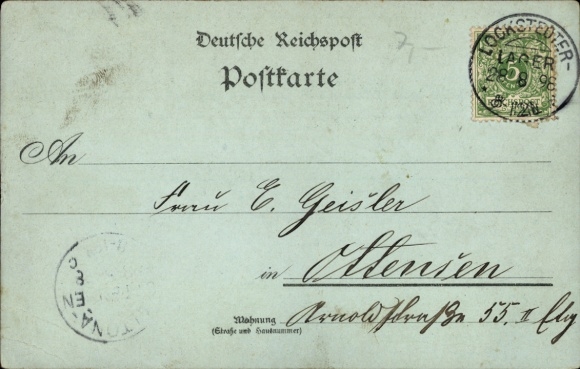 7,-
Deutsche Reichspost
Postkarte
LOCKSTEDTER-
LAGER
28 8 98
5
An
Frau E. Geisler
in Ottensen
Wohnung Arnoldstraße 55. II Etg
(Straße und Hausnummer)